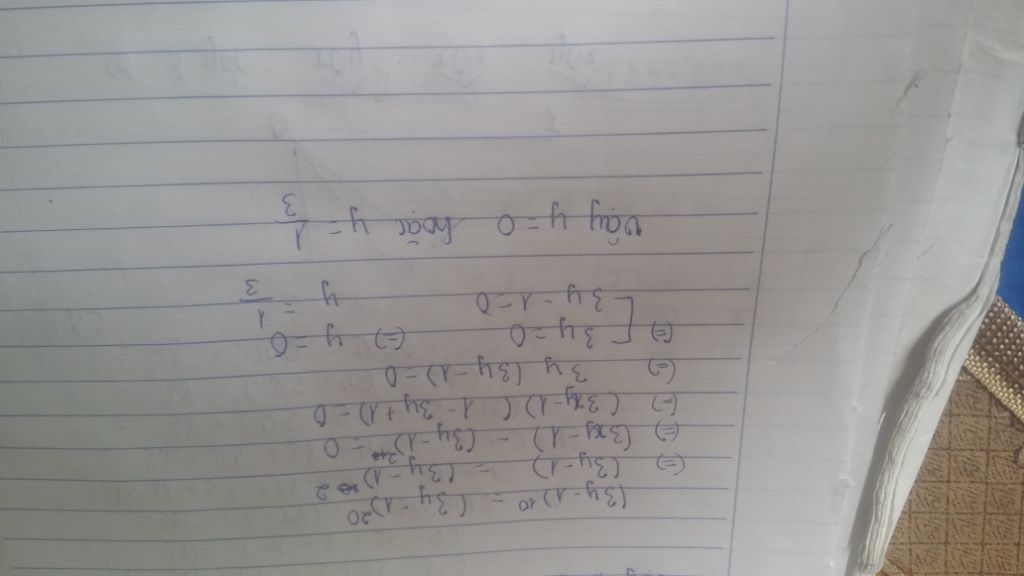 (3y-1)¹⁰ = (3y-1)²⁰
(=) (3y-1) = (3y-1)²
(=) (3y-1) - (3y-1)² = 0
(=) (3y-1) (1-3y+1) = 0
(=) 3y (3y-1) = 0
(=) [ 3y = 0 (=) y = 0
3y - 1 = 0 y = 1/3
vậy y = 0 hoặc y = 1/3